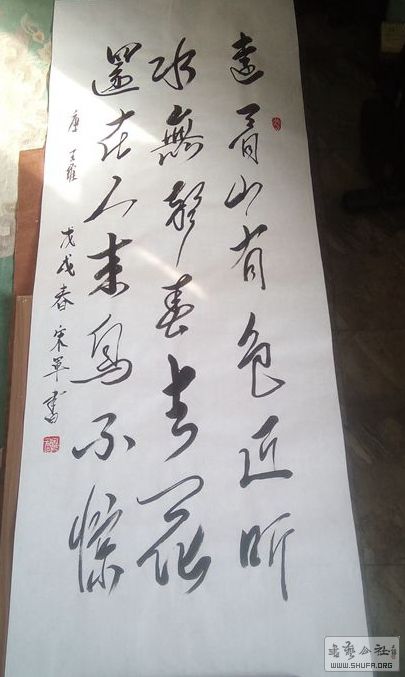 遠看山有色近听
水無聲春去花
還在人来鳥不惊
唐 王維
戊戌春宋軍書
書藝公社
WWW.SHUFA.ORG